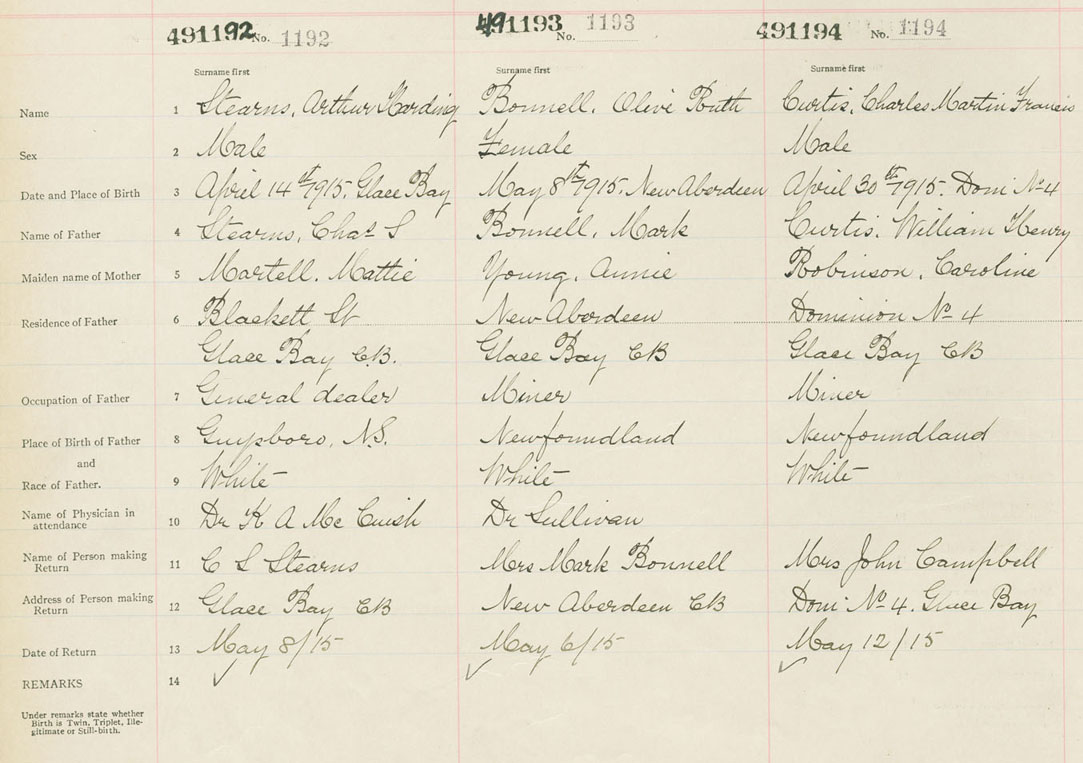 491192 No. 1192 491193 No. 1193 491194 No. 1194
Surname first Surname first Surname first
Name 1 Stearns, Arthur Harding Bonnell, Olive Ruth Curtis, Charles Martin Francis
Sex 2 Male Female Male
Date and Place of Birth 3 April 14th 1915. Glace Bay May 8th 1915. New Aberdeen April 30th 1915. Dom: No 4
Name of Father 4 Stearns, Chas S Bonnell, Mark Curtis, William Henry
Maiden name of Mother 5 Martell, Mattie Young, Annie Robinson, Caroline
Residence of Father 6 Blackett St New Aberdeen Dominion No 4
Glace Bay CB. Glace Bay CB Glace Bay CB
Occupation of Father 7 General dealer Miner Miner
Place of Birth of Father 8 Guysboro, N.S. Newfoundland Newfoundland
and
Race of Father. 9 White White White
Name of Physician in
attendance 10 Dr K A McCuish Dr Sullivan
Name of Person making
Return 11 C S Stearns Mrs Mark Bonnell Mrs John Campbell
Address of Person making
Return 12 Glace Bay CB New Aberdeen CB Dom: No 4. Glace Bay
Date of Return 13 May 8/15 May 6/15 May 12/15
REMARKS 14
Under remarks state whether
Birth is Twin, Triplet, Ille-
gitimate or Still-birth.